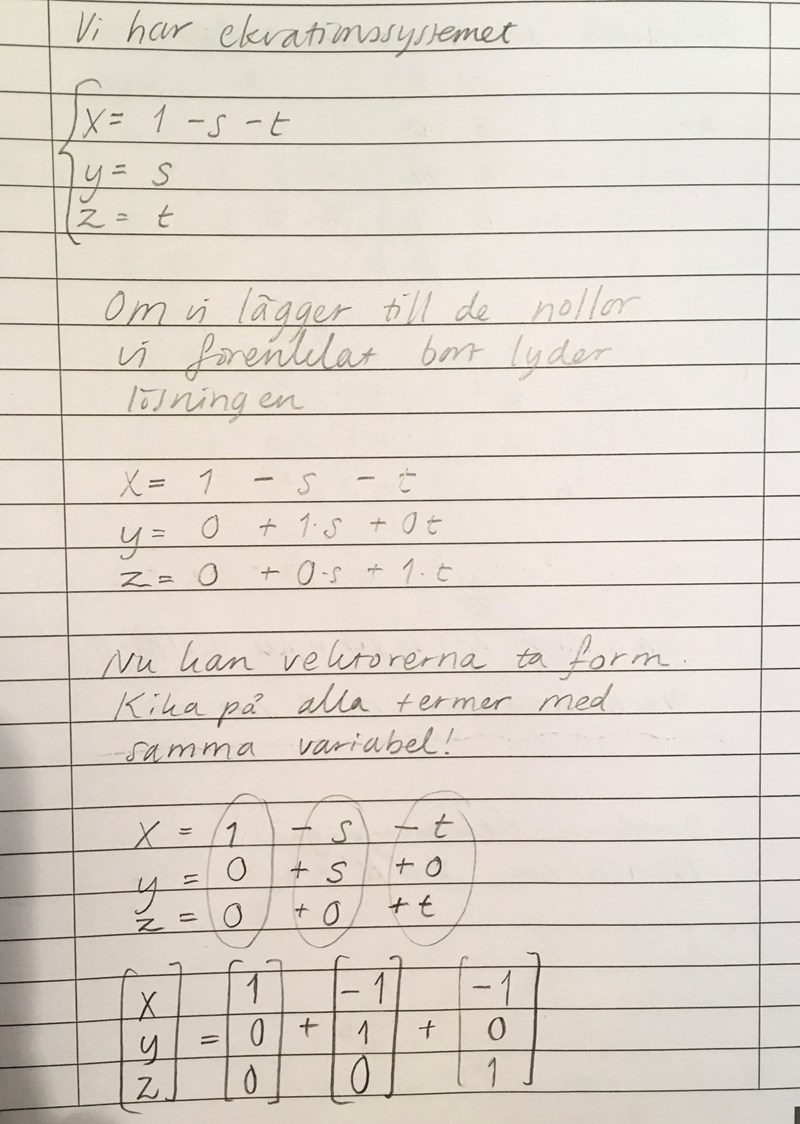 Vi har ekvationssystemet
x = 1 - s - t
y = s
z = t
Om vi lägger till de nollor
vi förenklat bort lyder
lösningen
x = 1 - s - t
y = 0 + 1·s + 0t
z = 0 + 0·s + 1·t
Nu kan vektorerna ta form.
Kika på alla termer med
samma variabel!
x = 1 - s - t
y = 0 + s + 0
z = 0 + 0 + t
[x] [1] [-1] [-1]
[y] = [0] + [1] + [0]
[z] [0] [0] [1]